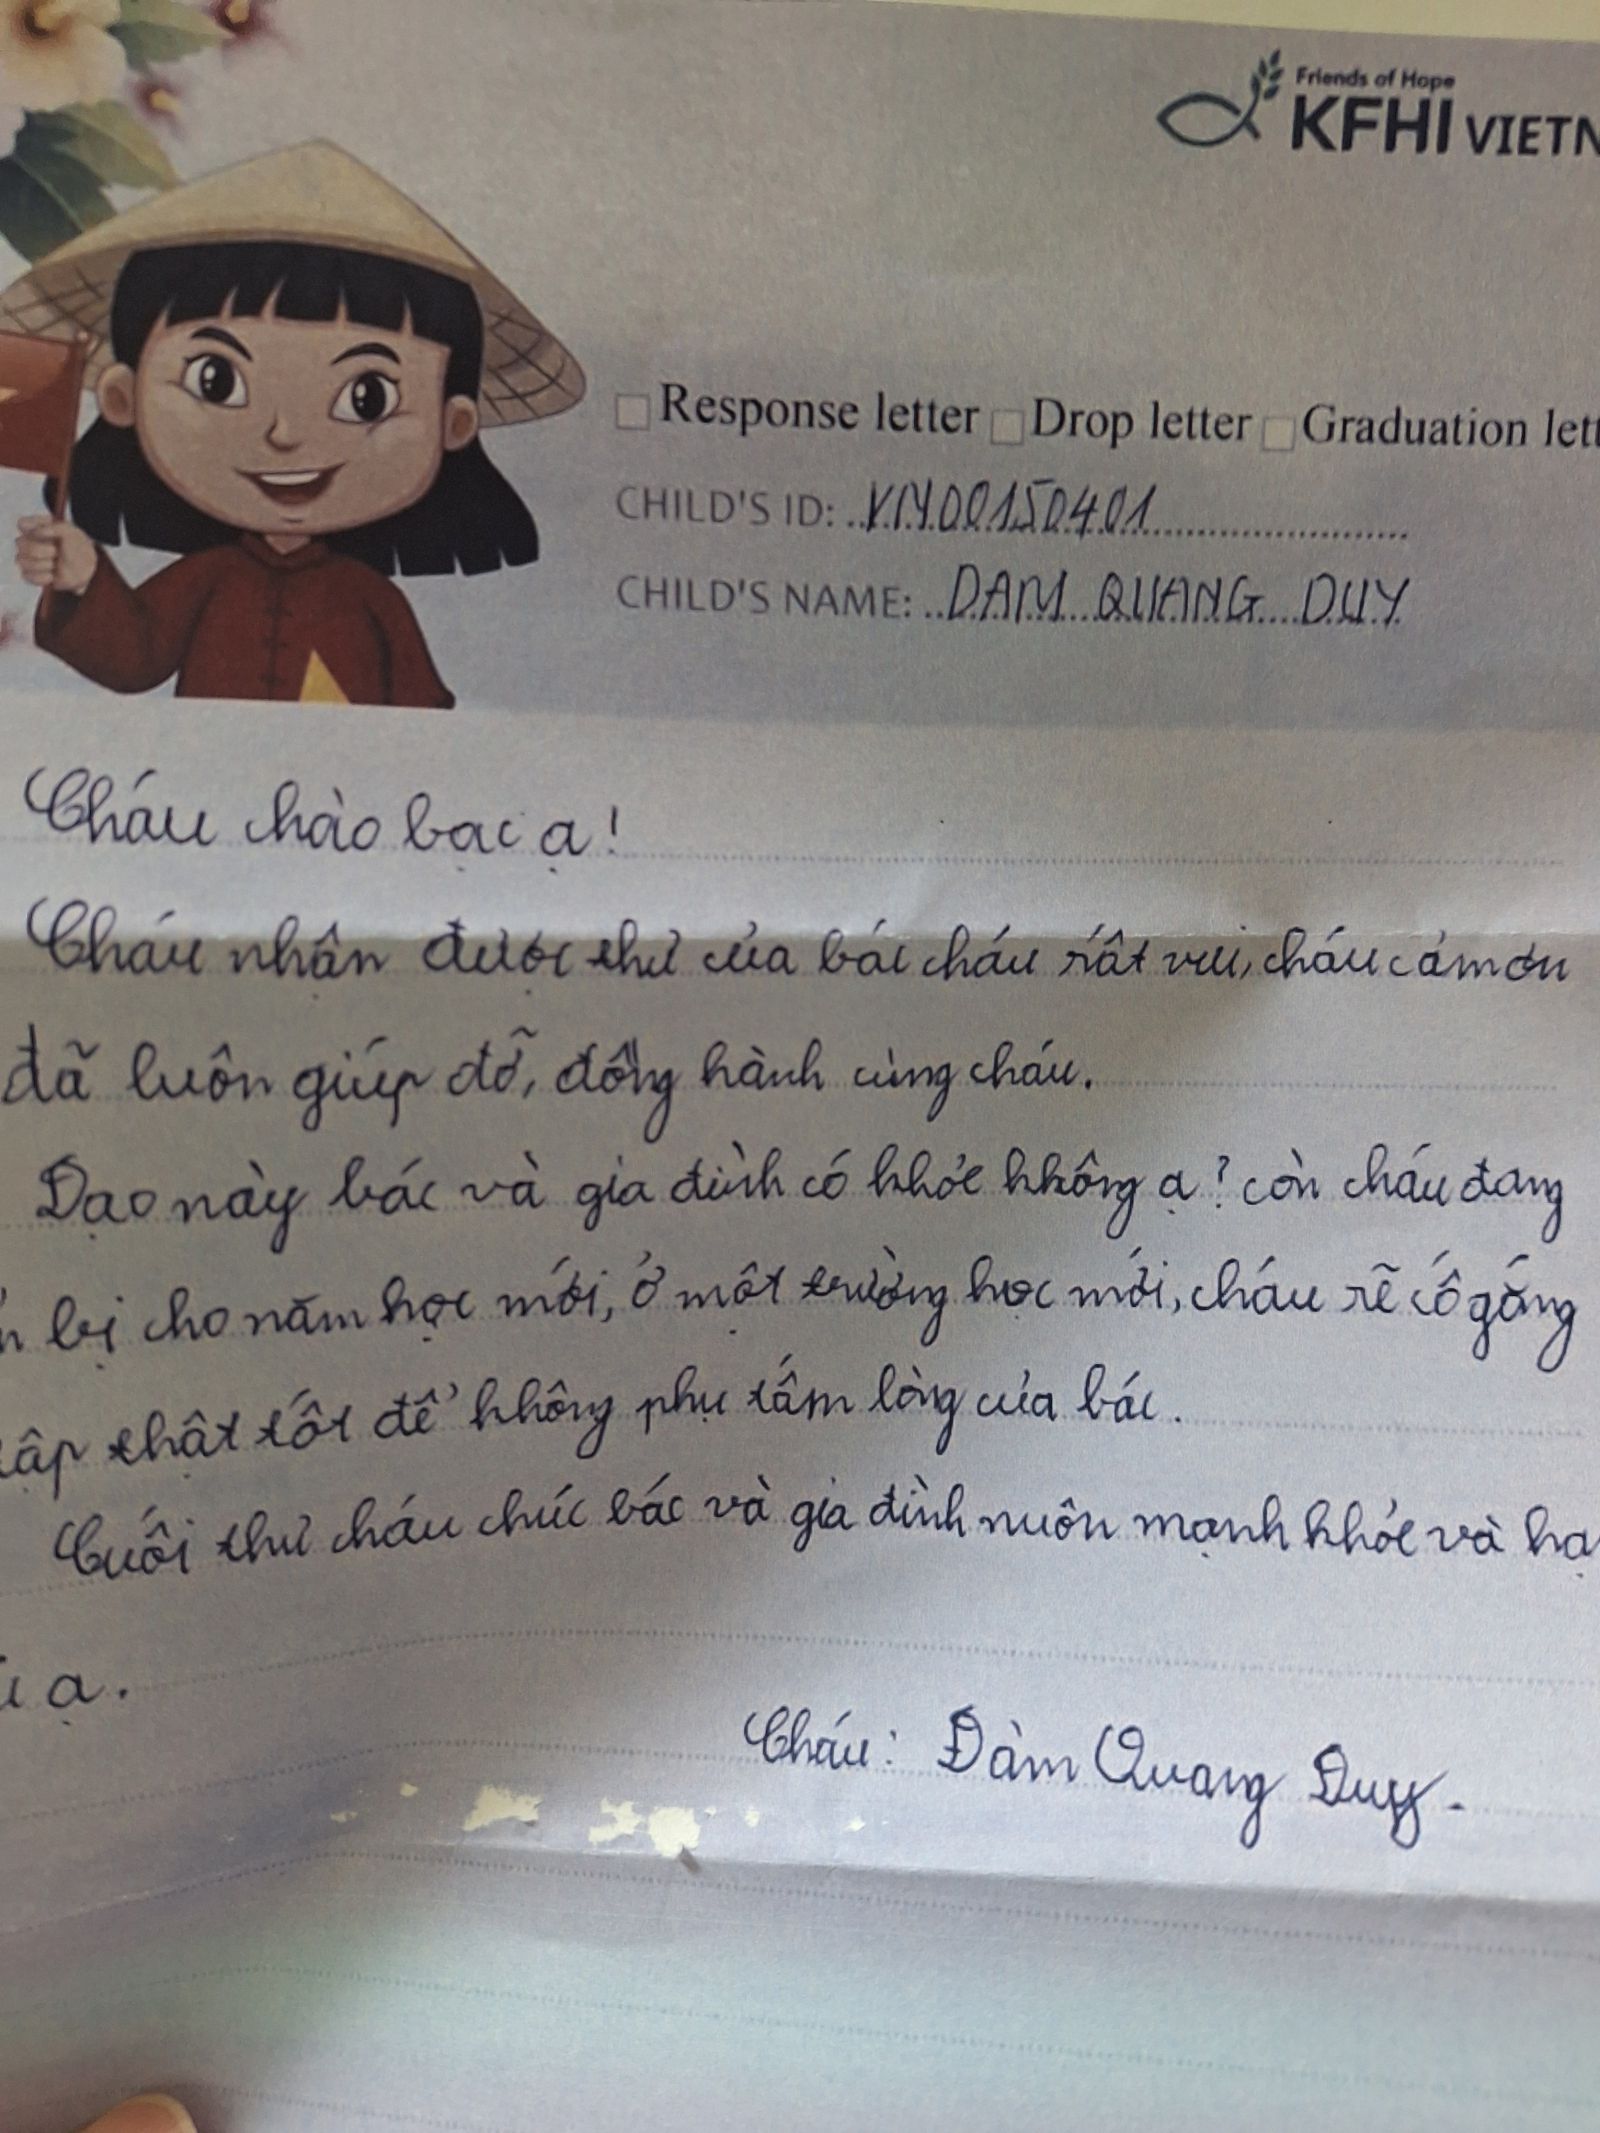 Friends of Hope
KFHI VIETN
Response letter Drop letter Graduation lett
CHILD'S ID: VIY00150401
CHILD'S NAME: DAM QUANG DUY
Cháu chào bạc ạ!
Cháu nhận được thư của bác cháu rất vui, cháu cảm ơn
đã luôn giúp đỡ, đồng hành cùng cháu.
Dạo này bác và gia đình có khỏe không ạ? còn cháu đang
bị cho năm học mới, ở một trường học mới, cháu sẽ cố gắng
tập thật tốt để không phụ tấm lòng của bác.
Cuối thư cháu chúc bác và gia đình nuôn mạnh khỏe và hạ
ạ.
Cháu: Đàm Quang Duy.